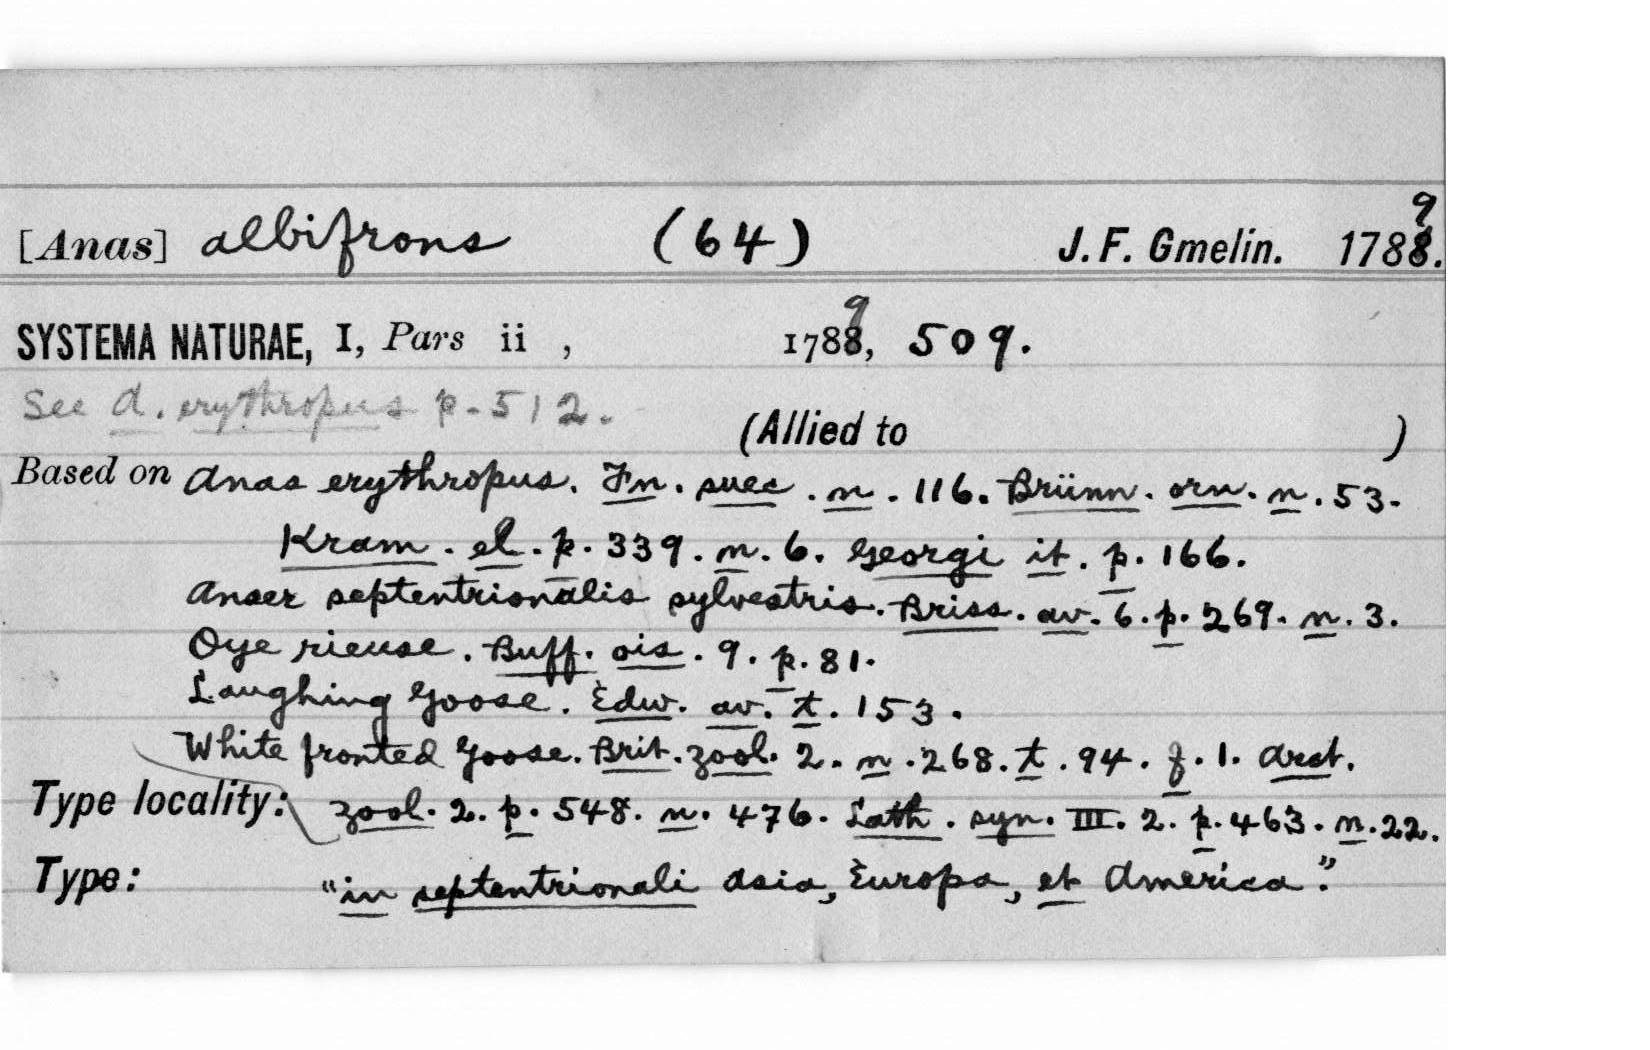 [Anas] albifrons (64) J. F. Gmelin. 1789.
SYSTEMA NATURAE, I, Pars ii , 1789, 509.
See A. erythropus p. 512.
(Allied to )
Based on Anas erythropus. Fn. suec. n. 116. Brünn. orn. n. 53.
Kram. el. p. 339. n. 6. Georgi it. p. 166.
Anser septentrionalis sylvestris. Briss. av. 6. p. 269. n. 3.
Oye rieuse. Buff. ois. 9. p. 81.
Laughing Goose. Edw. av. t. 153.
White fronted Goose. Brit. zool. 2. n. 268. t. 94. f. 1. Arct.
Type locality: zool. 2. p. 548. n. 476. Lath. syn. III. 2. p. 463. n. 22.
Type: "in septentrionali Asia, Europa, et America."